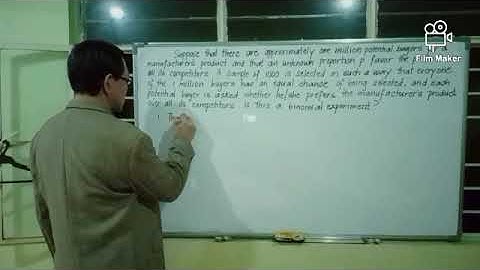 Suppose that there are approximately one million potential buyers
manufacturer's product and that an unknown proportion p favor the
all its competitors. A sample of 1000 is selected in such a way that everyone
of the 1 million buyers has an equal chance of being selected, and each
potential buyer is asked whether he/she prefers the manufacturer's product
over all its competitors. Is this a binomial experiment?
1.
Film Maker